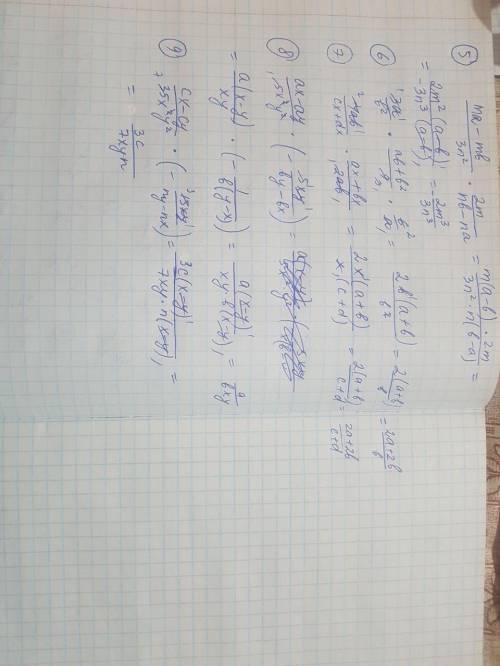 5 (ma - mb)/(3n²) · 2m/(nb - na) = (m(a-b) · 2m)/(3n² · n(b-a)) =
= 2m²(a-b)/(-3n³(a-b)) =
6
= 2b(a+b)/b² = 2(a+b)/b = (2a+2b)/b
7 /(cx+dx) · (ax+bx)/2ab = 2x(a+b)/(x(c+d)) = 2(a+b)/(c+d) = (2a+2b)/(c+d)
8 (ax-ay)/(5x²y²) · (- 5xy/(by-bx)) =
= a(x-y)/xy · (- 1/(b(y-x))) = a(x-y)/(xy·b(x-y)) = a/bxy
9 (cx-cy)/(35x²y²) · (- 15xy/(ny-nx)) = 3c(x-y)/(7xy·n(x-y)) =
= 3c/7xyn